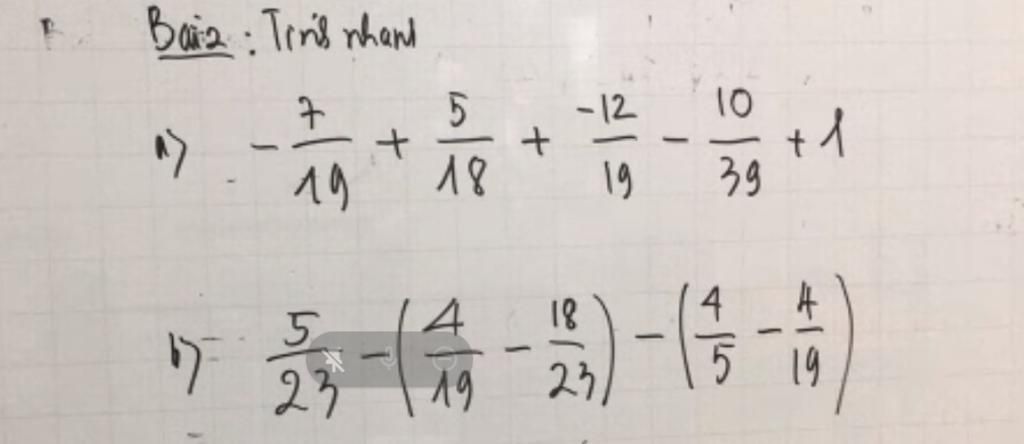 Bài 2: Tính nhanh
a) - 7/19 + 5/18 + -12/19 - 10/39 + 1
b) 5/23 - (4/19 - 18/23) - (4/5 - 4/19)